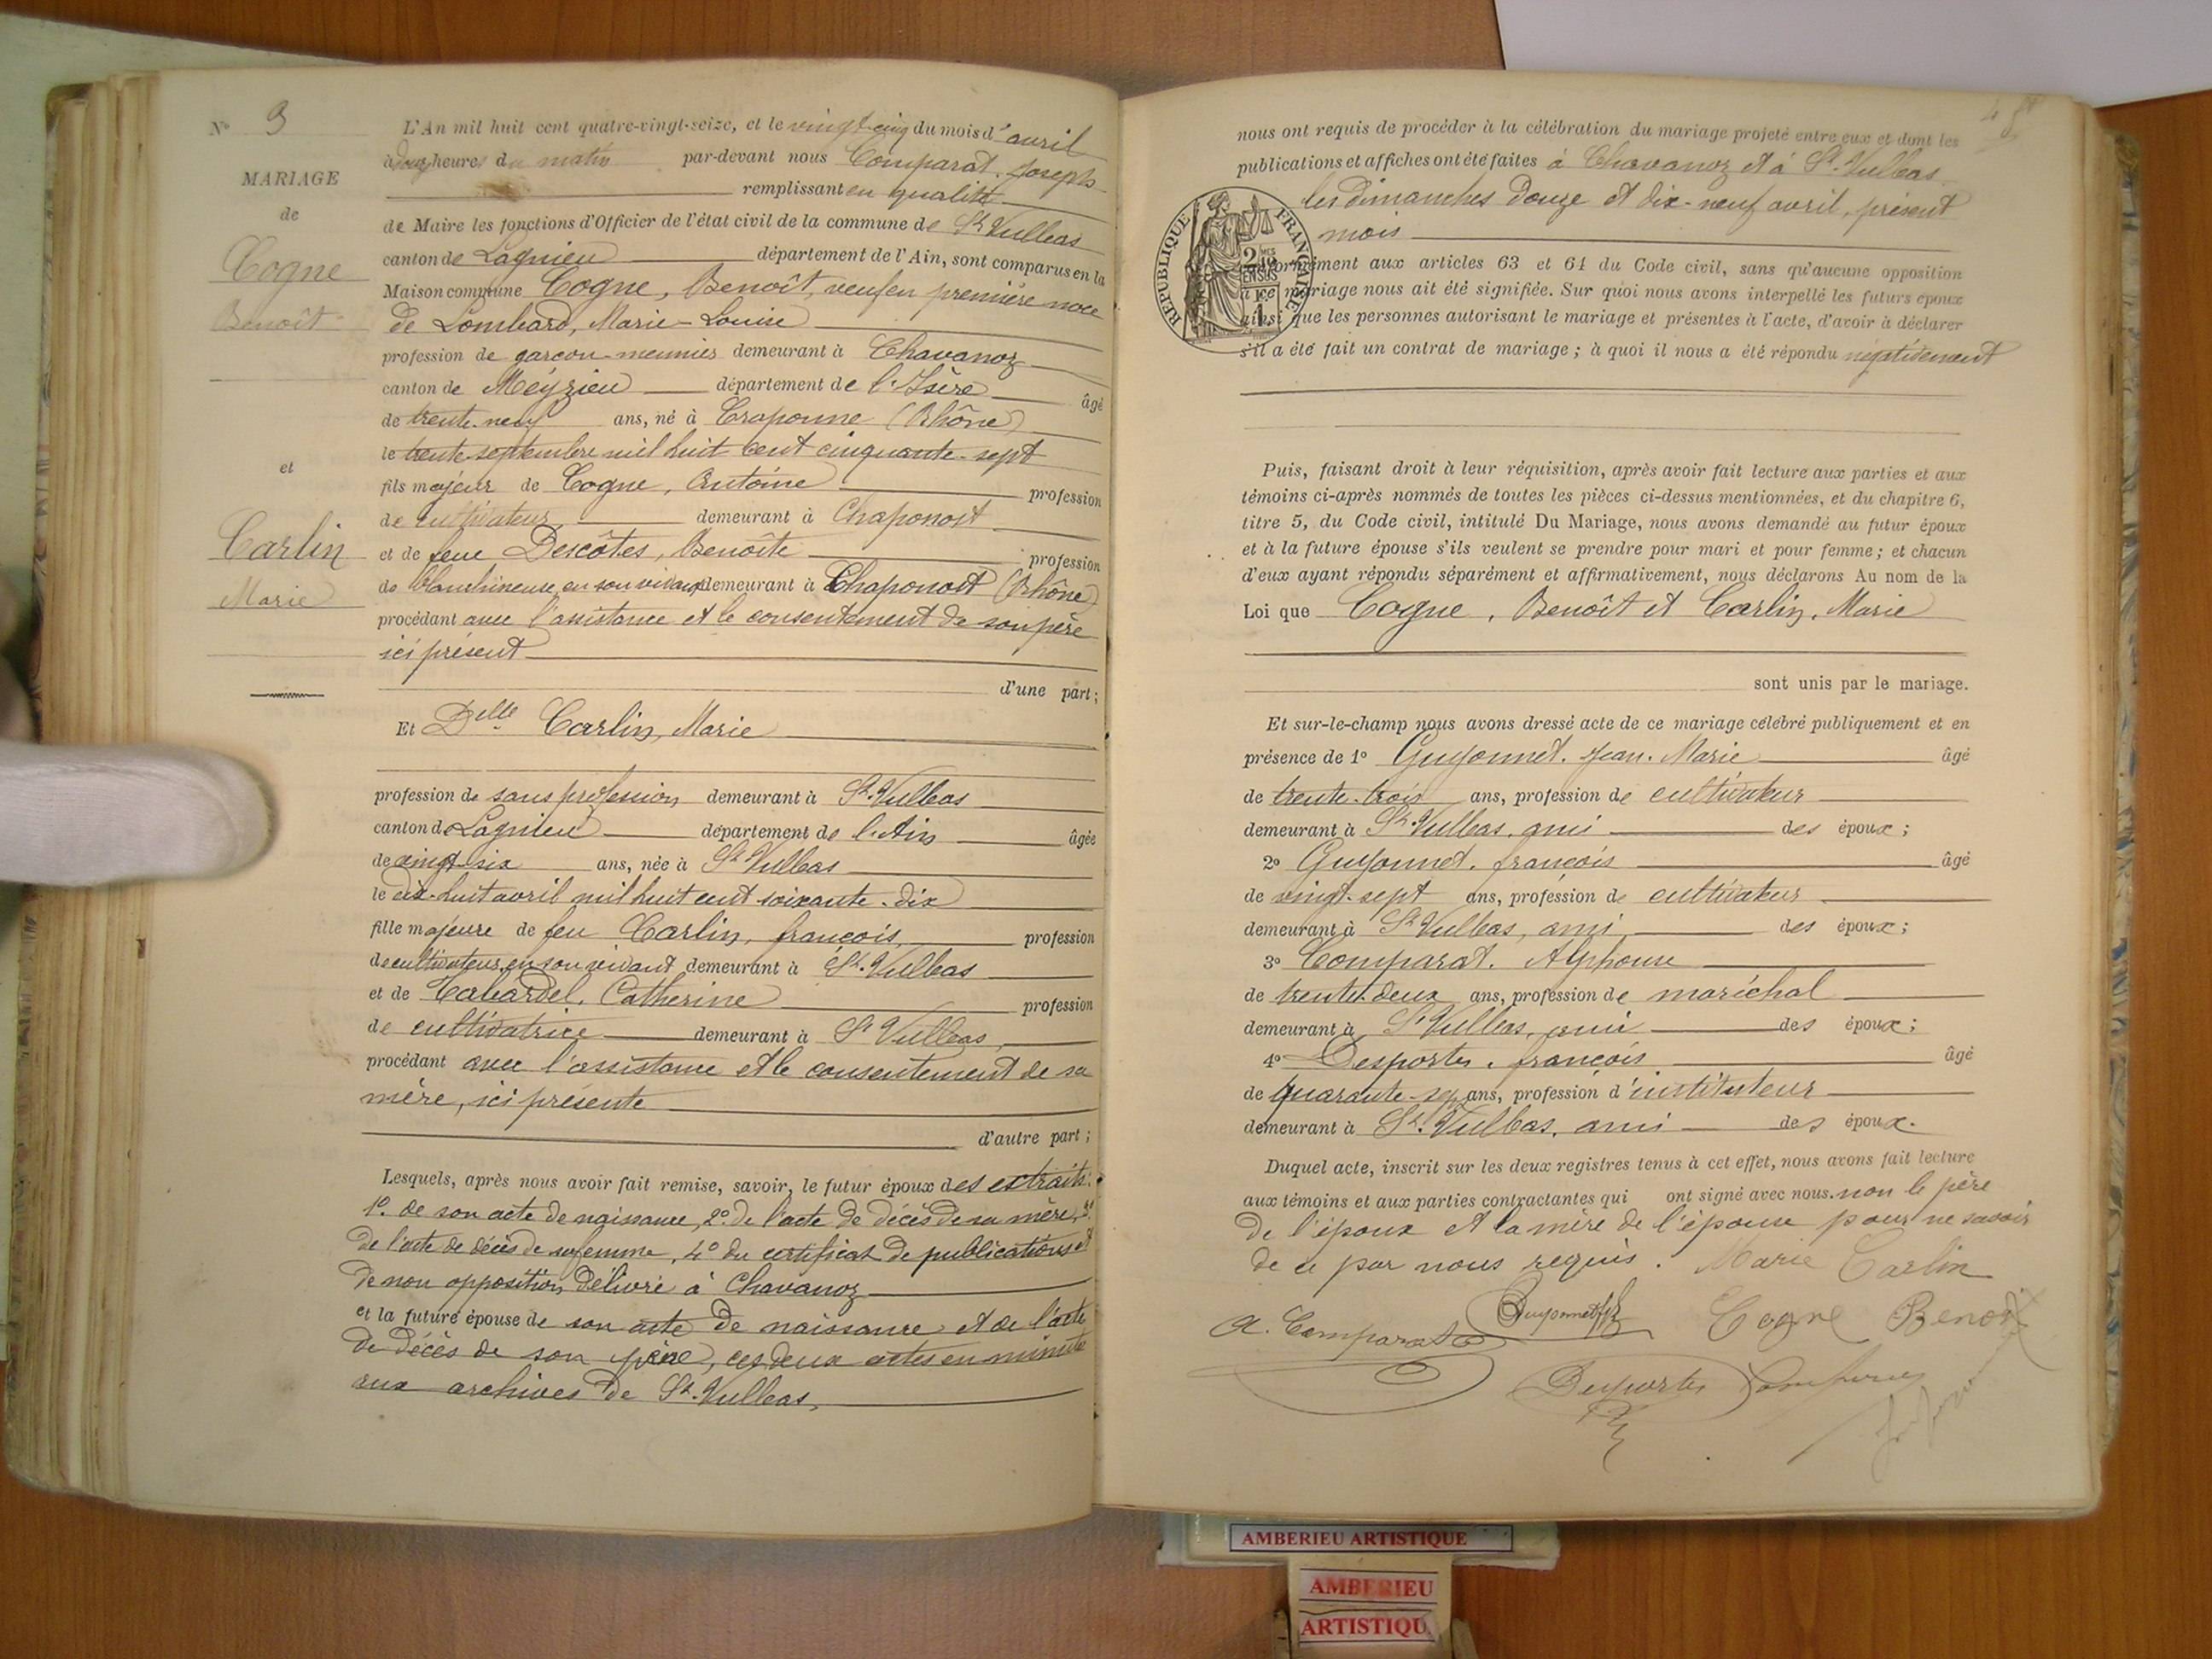 N° 3
MARIAGE
de
Cogne
Benoît
et
Carlin
Marie
L'An mil huit cent quatre-vingt-seize, et le vingt-cinq du mois d'avril
à heures du matin par-devant nous Comparat, Joseph
remplissant en qualité
de Maire les fonctions d'Officier de l'état civil de la commune de St Vulbas
canton de Lagnieu département de l'Ain, sont comparus en la
Maison commune Cogne, Benoît, veuf en première noce
de Lombard, Marie-Louise
profession de garçon-meunier demeurant à Chavanoz
canton de Meyzieu département de l'Isère âgé
de trente-neuf ans, né à Craponne (Rhône)
le trente septembre mil huit cent cinquante-sept
fils majeur de Cogne, Antoine profession
de cultivateur demeurant à Chaponost
et de feue Descôtes, Benoîte profession
de blanchisseuse en son vivant demeurant à Chaponost (Rhône)
procédant avec l'assistance et le consentement de son père
ici présent
d'une part;
Et Delle Carlin, Marie
profession de sans profession demeurant à St. Vulbas
canton de Lagnieu département de l'Ain âgée
de vingt-six ans, née à St Vulbas
le dix-huit avril mil huit cent soixante-dix
fille majeure de feu Carlin, françois, profession
de cultivateur en son vivant demeurant à St. Vulbas
et de Cabardel, Catherine profession
de cultivatrice demeurant à St Vulbas,
procédant avec l'assistance et le consentement de sa
mère, ici présente
d'autre part;
Lesquels, après nous avoir fait remise, savoir, le futur époux des extraits:
1° de son acte de naissance, 2° de l'acte de décès de sa mère, 3°
de l'acte de décès de sa femme, 4° du certificat de publications et
de non opposition délivré à Chavanoz
et la future épouse de son acte de naissance et de l'acte
de décès de son père, ces deux actes en minute
aux archives de St. Vulbas,
nous ont requis de procéder à la célébration du mariage projeté entre eux et dont les
publications et affiches ont été faites à Chavanoz et à St. Vulbas
les dimanches douze et dix-neuf avril, présent
mois
RÉPUBLIQUE FRANÇAISE
conformément aux articles 63 et 64 du Code civil, sans qu'aucune opposition
à ce mariage nous ait été signifiée. Sur quoi nous avons interpellé les futurs époux
ainsi que les personnes autorisant le mariage et présentes à l'acte, d'avoir à déclarer
s'il a été fait un contrat de mariage; à quoi il nous a été répondu négativement
Puis, faisant droit à leur réquisition, après avoir fait lecture aux parties et aux
témoins ci-après nommés de toutes les pièces ci-dessus mentionnées, et du chapitre 6,
titre 5, du Code civil, intitulé Du Mariage, nous avons demandé au futur époux
et à la future épouse s'ils veulent se prendre pour mari et pour femme; et chacun
d'eux ayant répondu séparément et affirmativement, nous déclarons Au nom de la
Loi que Cogne, Benoît et Carlin, Marie
sont unis par le mariage.
Et sur-le-champ nous avons dressé acte de ce mariage célébré publiquement et en
présence de 1° Guyonnet, Jean-Marie âgé
de trente-trois ans, profession de cultivateur
demeurant à St. Vulbas, ami des époux;
2° Guyonnet, françois âgé
de vingt-sept ans, profession de cultivateur
demeurant à St. Vulbas, ami des époux;
3° Comparat, Alphonse
de trente-deux ans, profession de maréchal
demeurant à St Vulbas, ami des époux;
4° Desportes, françois âgé
de quarante-sept ans, profession d'instituteur
demeurant à St. Vulbas, ami des époux.
Duquel acte, inscrit sur les deux registres tenus à cet effet, nous avons fait lecture
aux témoins et aux parties contractantes qui ont signé avec nous, non le père
de l'époux et la mère de l'épouse pour ne savoir
de ce par nous requis. Marie Carlin
A. Comparat Guyonnet Cogne Benoit
Desportes
AMBERIEU ARTISTIQUE
AMBERIEU
ARTISTIQU